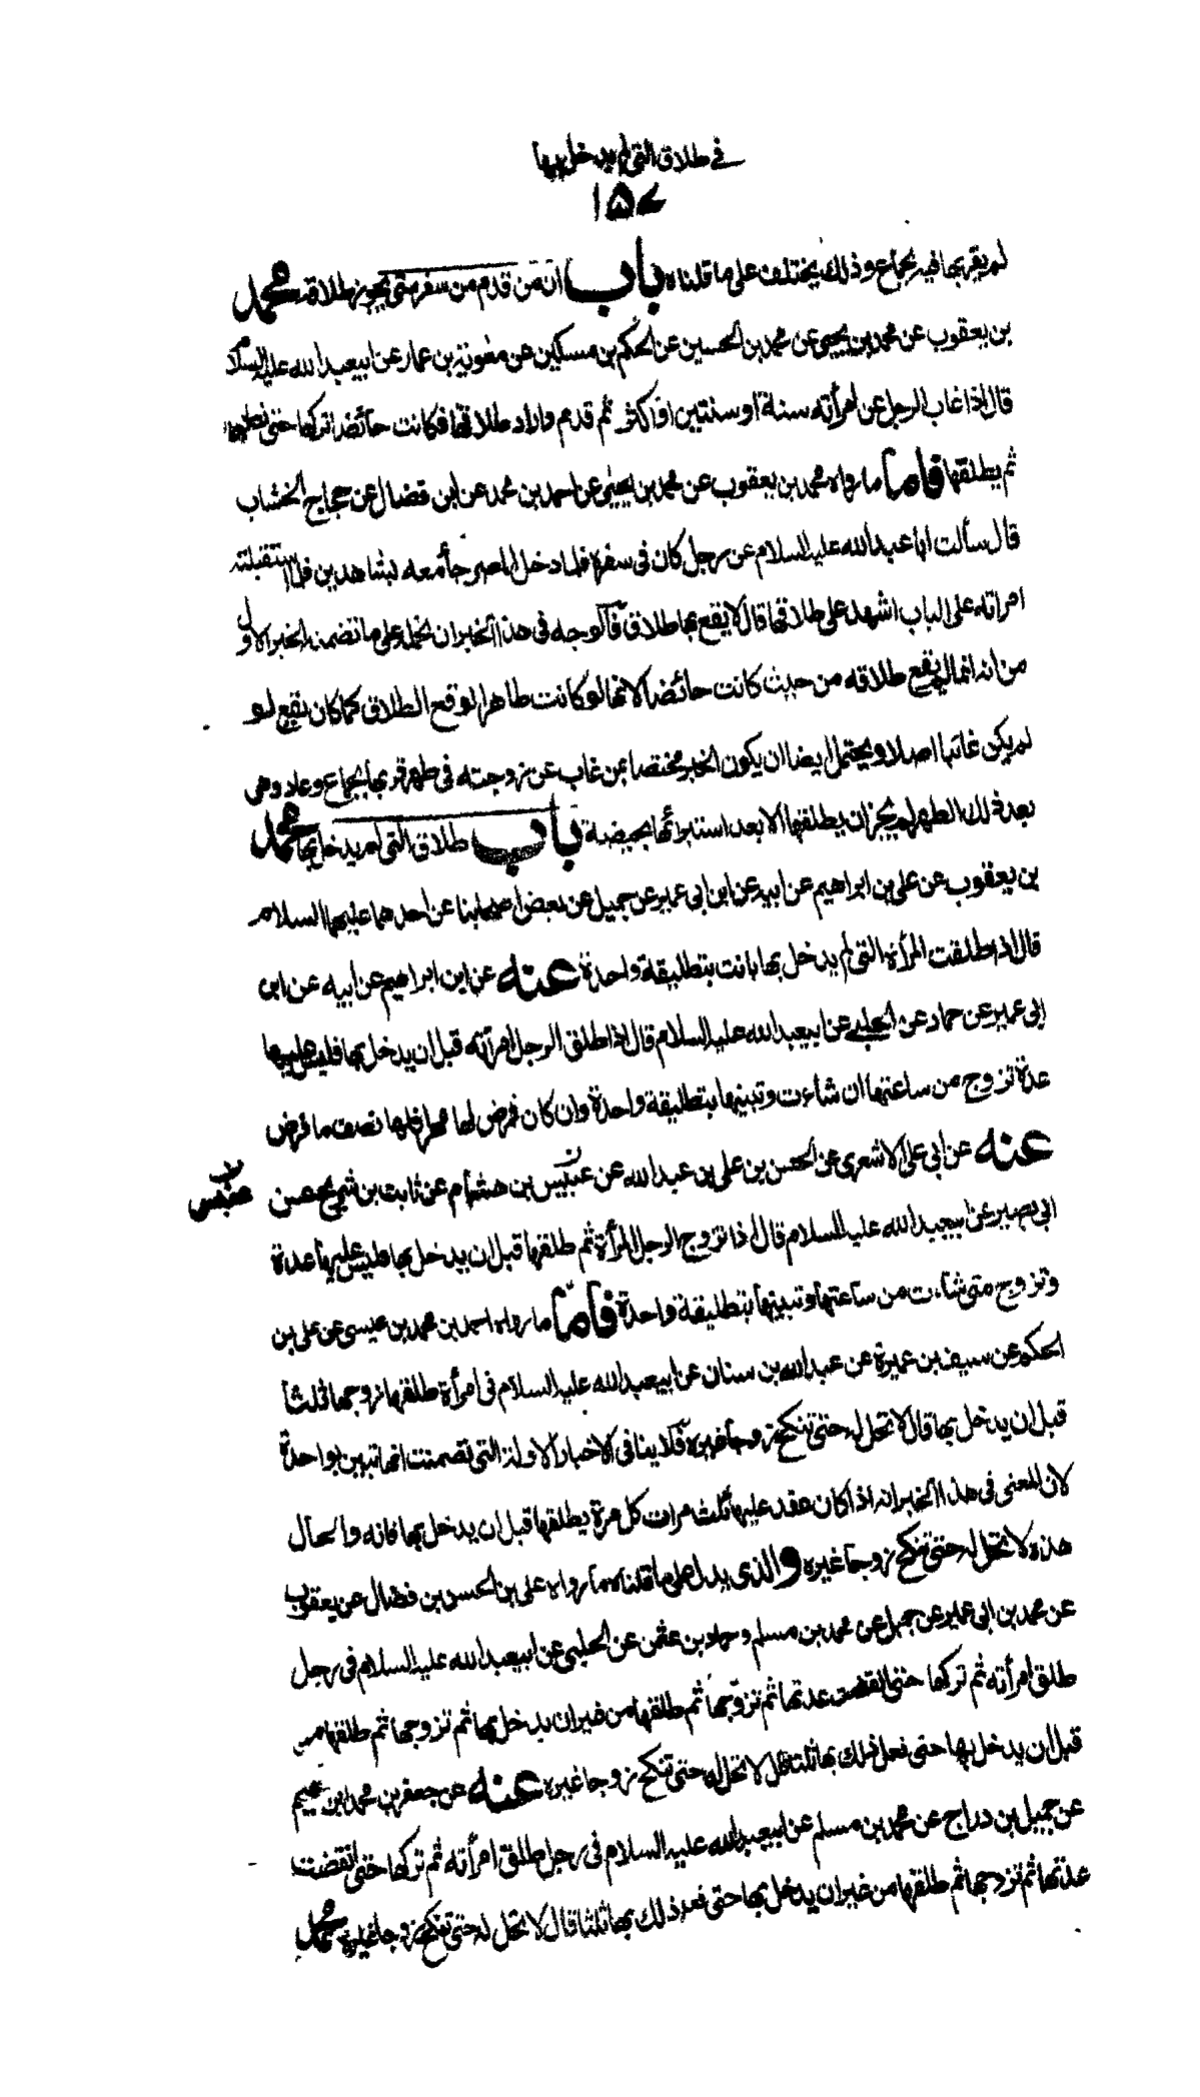 في طلاق التي لم يدخل بها
١٥٧
لم يقربها فيه بجماع وذلك يختلف على ما قلناه باب ان من قدم من سفر متى يجوز طلاقه محمد
بن يعقوب عن محمد بن يحيى عن محمد بن الحسين عن الحكم بن مسكين عن معوية بن عمار عن ابيعبد الله عليه السلام
قال اذا غاب الرجل عن امرأته سنة او سنتين او اكثر ثم قدم واراد طلاقها فكانت حائضا تركها حتى تطهر
ثم يطلقها فاما ما رواه محمد بن يعقوب عن محمد بن يحيى عن احمد بن محمد عن ابن فضال عن حجاج الخشاب
قال سألت ابا عبد الله عليه السلام عن رجل كان في سفره فلما دخل المصر جآء معه بشاهدين فلما استقبلته
امراته على الباب اشهد على طلاقها قال لا يقع بها طلاق فالوجه في هذا الخبر ان نحمله على ما تضمنه الخبر الاول
من انه انما لم يقع طلاقه من حيث كانت حائضا لانها لو كانت طاهرا لوقع الطلاق كما كان يقع لو
لم يكن غائبا اصلا ويحتمل ايضا ان يكون الخبر مختصا بمن غاب عن زوجته في طهر قربها بجماع وعاد وهي
بعد في ذلك الطهر لم يجز ان يطلقها الا بعد استبرائها بحيضة باب طلاق التي لم يدخل بها محمد
بن يعقوب عن علي بن ابراهيم عن ابيه عن ابن ابي عمير عن جميل عن بعض اصحابنا عن احدهما عليهما السلام
قال اذا طلقت المرأة التي لم يدخل بها بانت بتطليقة واحدة عنه عن ابن ابراهيم عن ابيه عن ابن
ابي عمير عن حماد عن الحلبي عن ابيعبد الله عليه السلام قال اذا طلق الرجل امرأته قبل ان يدخل بها فليس عليها
عدة تزوج من ساعتها ان شاءت وتبينها بتطليقة واحدة وان كان فرض لها مهرا فلها نصف ما فرض
عنه عن ابي علي الاشعري عن الحسن بن علي بن عبد الله عن عبيس بن هشام عن ثابت بن شريح عن
ابي بصير عن ابيعبد الله عليه السلام قال اذا تزوج الرجل المرأة ثم طلقها قبل ان يدخل بها فليس عليها عدة
وتزوج متى شاءت من ساعتها وتبينها بتطليقة واحدة فاما ما رواه احمد بن محمد بن عيسى عن علي بن
الحكم عن سيف بن عميرة عن عبد الله بن سنان عن ابيعبد الله عليه السلام في امرأة طلقها زوجها ثلثا
قبل ان يدخل بها قال لا تحل له حتى تنكح زوجا غيره فلا ينافي الاخبار الاولة التي تضمنت انها تبين بواحدة
لان المعنى في هذا الخبر انه اذا كان عقد عليها ثلث مرات كل مرة يطلقها قبل ان يدخل بها فانه والحال
هذه لا تحل له حتى تنكح زوجا غيره والذي يدل على ما قلناه ما رواه علي بن الحسن بن فضال عن يعقوب
عن محمد بن ابي عمير عن جميل عن محمد بن مسلم وحماد بن عثمن عن الحلبي عن ابيعبد الله عليه السلام في رجل
طلق امرأته ثم تركها حتى انقضت عدتها ثم تزوجها ثم طلقها من غير ان يدخل بها ثم تزوجها ثم طلقها من
قبل ان يدخل بها حتى فعل ذلك بها ثلثا قال لا تحل له حتى تنكح زوجا غيره عنه عن جعفر بن محمد بن حكيم
عن جميل بن دراج عن محمد بن مسلم عن ابيعبد الله عليه السلام في رجل طلق امرأته ثم تركها حتى انقضت
عدتها ثم تزوجها ثم طلقها من غير ان يدخل بها حتى فعل ذلك بها ثلثا قال لا تحل له حتى تنكح زوجا غيره محمد